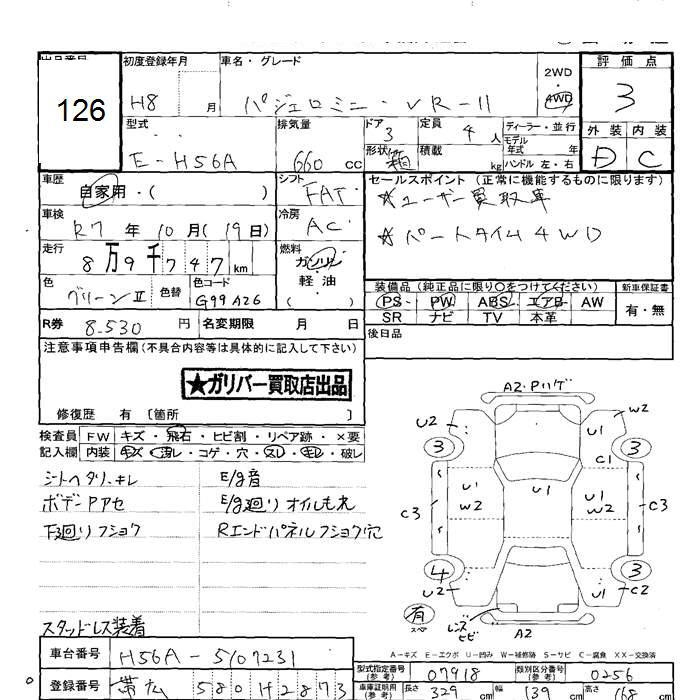 出品番号
126
初度登録年月
H8 月
車名・グレード
パジェロミニ・VR-II
2WD
4WD
評価点
3
型式
E-H56A
排気量
660 cc
ドア
3
定員
4 人
ディーラー・並行
モデル
年式 年
ハンドル 左・右
形状
箱
積載
kg
外装 内装
D C
車歴
自家用・( )
シフト
FAT
セールスポイント (正常に機能するものに限ります)
☆ユーザー買取車
☆パートタイム4WD
車検
R7 年 10 月(19日)
冷房
AC
走行
8万9千747 km
燃料
ガソリン
軽・油
( )
色
グリーンII
色替
色コード
G99 A26
装備品(純正品に限り〇をつけてください)
新車保証書
PS PW ABS エアB AW
SR ナビ TV 本革
有・無
R券 8.530 円
名変期限 月 日
後日品
注意事項申告欄(不具合内容等は具体的に記入して下さい)
★ガリバー買取店出品
修復歴 有〔箇所 〕
検査員 FW キズ・飛石・ヒビ割・リペア跡・×要
記入欄 内装 キズ・汚レ・コゲ・穴・スレ・キレ・破レ
シートヘタリ、キレ
E/g音
ボデーPアセ
E/g廻りオイルもれ
下廻りフショク
Rエンドパネルフショク穴
スタッドレス装着
A2・Pハゲ
U2
W2
3
3
U1
C1
C3
U1
W2
U1
U1
W2
C3
4
3
U2
U1
C2
有
スペ
レンズ
ヒビ
A2
A-キズ E-エクボ U-凹み W-補修跡 S-サビ C-腐食 XX-交換済
車台番号 H56A-5107231
型式指定番号
(参考)
07918
類別区分番号
(参考)
0256
登録番号 帯広 580 H2873
車庫証明用
(参考)
長さ 329 cm
幅 139 cm
高さ 168 cm